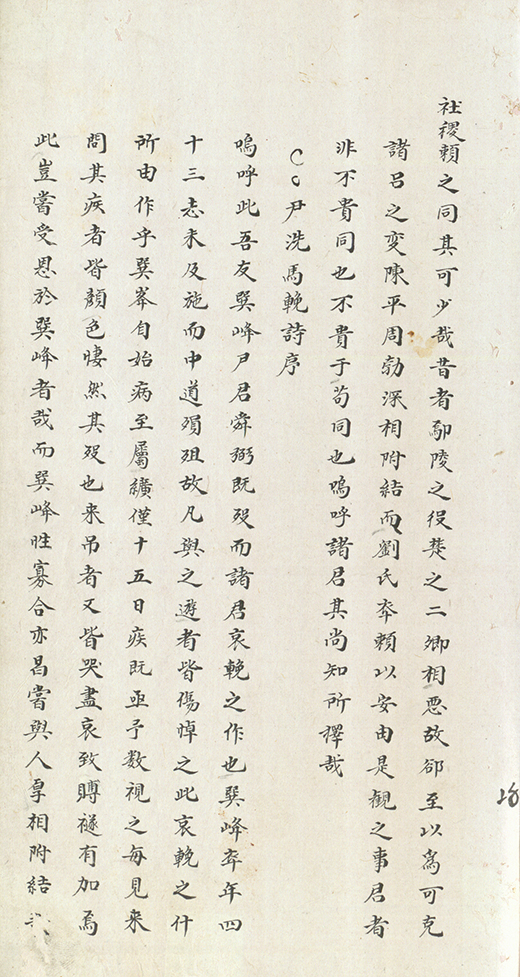 社稷賴之同其可少哉昔者鄢陵之役楚之二卿相惡故郤至以為可克
諸呂之変陳平周勃深相附結而劉氏卒賴以安由是観之事君者
非不貴同也不貴于苟同也嗚呼諸君其尚知所擇哉
尹洗馬輓詩序
嗚呼此吾友巽峰尹君舜弼既歿而諸君哀輓之作也巽峰卒年四
十三志未及施而中道殞殂故凡與之遊者皆傷悼之此哀輓之什
所由作乎巽峯自始病至屬纊僅十五日疾既亟予数視之每見来
問其疾者皆顔色悽然其歿也来吊者又皆哭盡哀致賻襚有加焉
此豈嘗受恩於巽峰者哉而巽峰性寡合亦曷嘗與人厚相附結